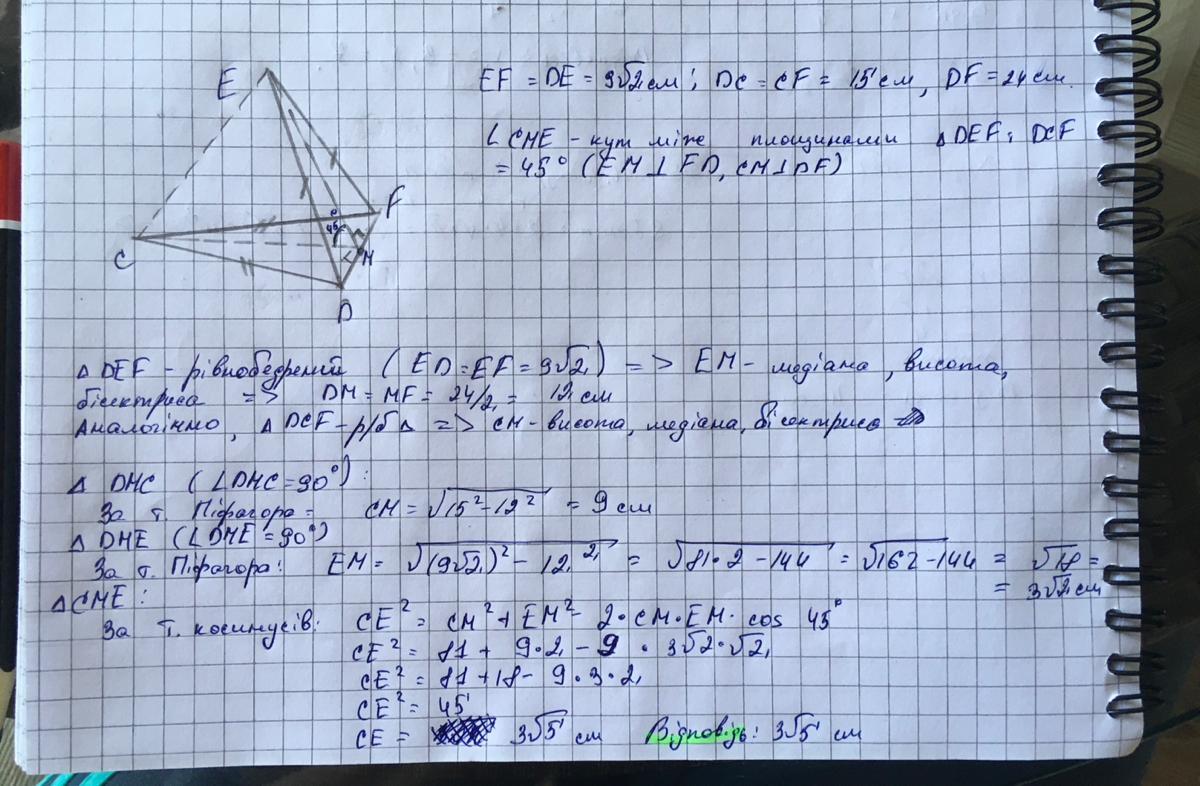 E
F
C
D
M
45°
EF = DE = 9√2 см; DC = CF = 15 см, DF = 24 см.
∠CME - кут між площинами △DEF і DCF
= 45° (EM⊥FD, CM⊥DF)
△DEF - рівнобедрений (ED = EF = 9√2) => EM - медіана, висота,
бісектриса => DM = MF = 24/2 = 12 см
Аналогічно, △DCF - р/б△ => CM - висота, медіана, бісектриса
△ DMC (∠DMC = 90°):
За т. Піфагора: CM = √15² - 12² = 9 см
△ DME (∠DME = 90°)
За т. Піфагора: EM = √(9√2)² - 12² = √81·2 - 144 = √162 - 144 = √18 =
= 3√2 см
△CME:
За т. косинусів: CE² = CM² + EM² - 2·CM·EM·cos 45°
CE² = 81 + 9·2 - 9 · 3√2·√2
CE² = 81 + 18 - 9·3·2
CE² = 45
CE = 3√5 см Відповідь: 3√5 см